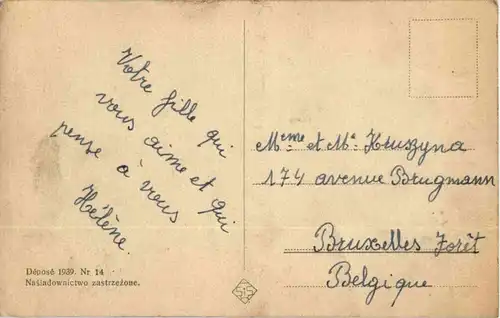 Votre fille qui
vous aime et qui
pense à vous
Hélène.
Mme et Mr Kruszyna
174 avenue Brugmann
Bruxelles Forêt
Belgique
Déposé 1939. Nr 14
Naśladownictwo zastrzeżone.